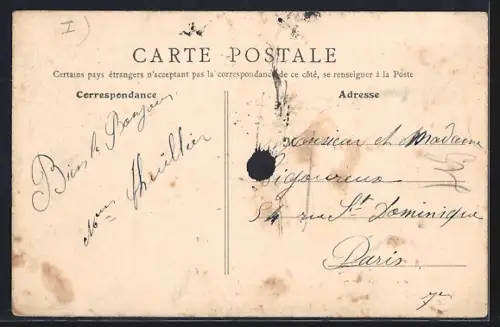 I)
CARTE POSTALE
Certains pays étrangers n'acceptant pas la correspondance de ce côté, se renseigner à la Poste
Correspondance
Adresse
Bien le Bonjour
Thuillier
Monsieur et Madame
Vigoureux
54 rue St Dominique
Paris
7e